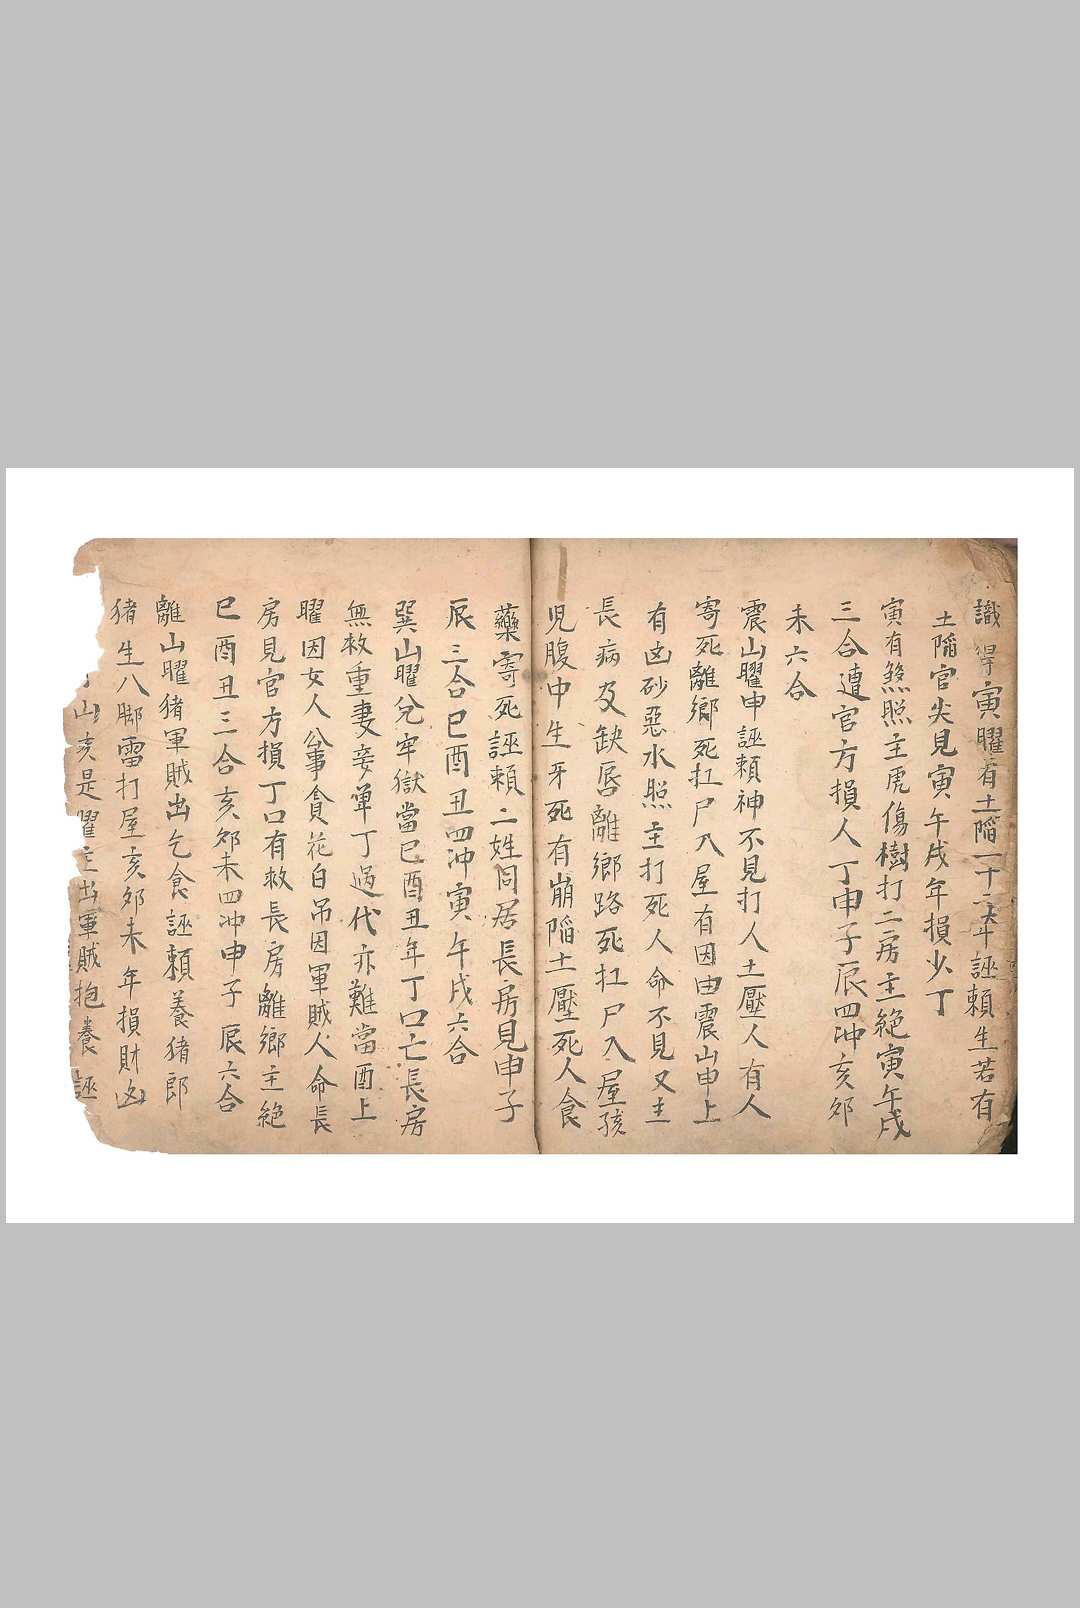 識得寅曜看土隌一十二年誣頼生若有
土隌官尖見寅午戌年損少丁
寅有煞照主虎傷樹打二房主絕寅午戌
三合遭官方損人丁申子辰四冲亥夘
未六合
震山曜申誣頼神不見打人土壓人有人
寄死離鄉死扛尸入屋有因由震山申上
有凶砂惡水照主打死人命不見又主
長病及缺唇離鄉路死扛尸入屋孩
児腹中生牙死有崩隌土壓死人食
藥寄死誣頼二姓同居長房見申子
辰三合巳酉丑四冲寅午戌六合
巽山曜兌牢獄當巳酉丑年丁口亡長房
無救重妻妾单丁過代亦難當酉上
曜因女人公事貪花白吊因軍賊人命長
房見官方損丁口有救長房離鄉主絕
巳酉丑三合亥夘未四冲申子辰六合
離山曜猪軍賊出乞食誣頼養猪郎
猪生八脚雷打屋亥夘未年損財凶
山亥是曜主出軍賊抱養誣